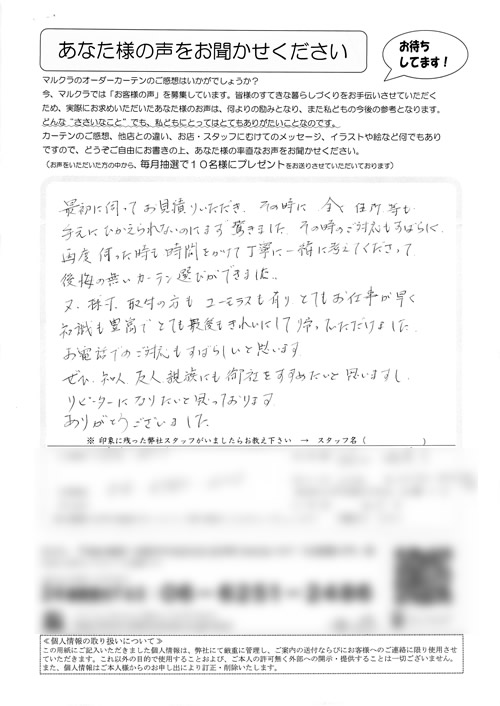 あなた様の声をお聞かせください
お待ち
してます!
マルクラのオーダーカーテンのご感想はいかがでしょうか?
今、マルクラでは「お客様の声」を募集しています。皆様のすてきな暮らしづくりをお手伝いさせていただく
ため、実際にお求めいただいたあなた様のお声は、何よりの励みとなり、また私どもの今後の参考となります。
どんな“ささいなこと”でも、私どもにとってはとてもありがたいことなのです。
カーテンのご感想、他店との違い、お店・スタッフにむけてのメッセージ、イラストや絵など何でもあり
ですので、どうぞご自由にお書きの上、あなた様の率直なお声をお聞かせください。
(お声をいただいた方の中から、毎月抽選で10名様にプレゼントをお送りさせていただいております)
最初に伺ってお見積りいただき、その時に 全く 住所 等も
手元にひかえられないのにまず驚きました その時のご対応もすばらしく、
再度 伺った時も 時間をかけて丁寧に一緒に考えてくださって
後悔の無いカーテン選びができました。
又、採寸、取付の方も ユーモラスも有り とてもお仕事が早く
知識も豊富でとても最後もきれいにして帰っていただけました
お電話でのご対応もすばらしいと思います
ぜひ、知人 友人 親族にも 御社をすすめたいと思いますし、
リピーターになりたいと思っております
ありがとうございました
※ 印象に残った弊社スタッフがいましたらお教え下さい → スタッフ名 ( )
06-6251-2486
≪個人情報の取り扱いについて≫
この用紙にご記入いただきました個人情報は、弊社にて厳重に管理し、ご案内の送付ならびにお客様へのご連絡に限り使用させ
ていただきます。これ以外の目的で使用することおよび、ご本人の許可無く外部への開示・提供することは一切ございません。
また、個人情報はご本人様からのお申し出により訂正・削除いたします。